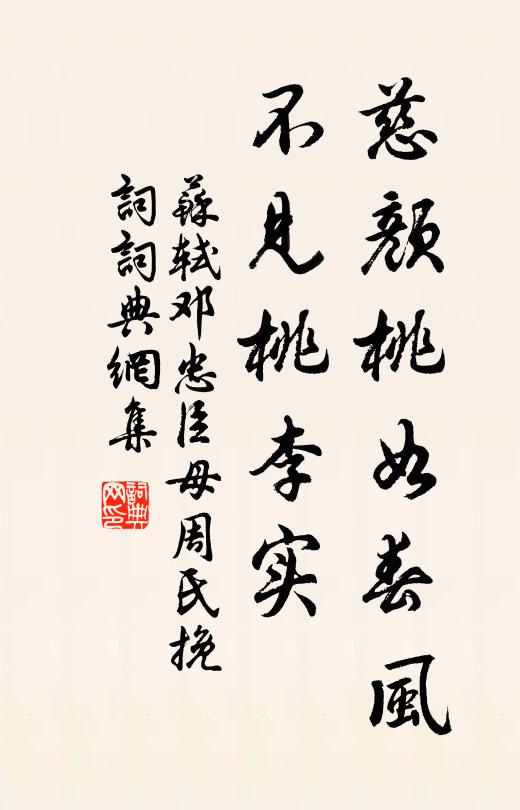 慈顏桃如春風
不見桃李实
蘇軾邓忠臣母周氏挽
詞詞典網集
詞典网印